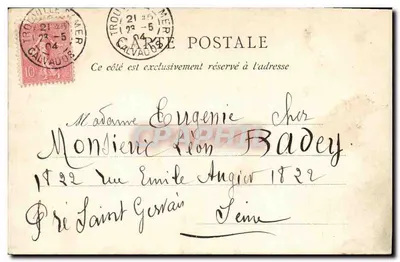 TROUVILLE S MER
21 35
23 -5
04
CALVADOS
TROUVILLE S MER
21
23 -5
04
CALVADOS
CARTE POSTALE
Ce côté est exclusivement réservé à l'adresse
Madame Eugenie cher
Monsieur Léon Badey
1822 rue Emile Augier 1822
Pré Saint Gervais
Seine